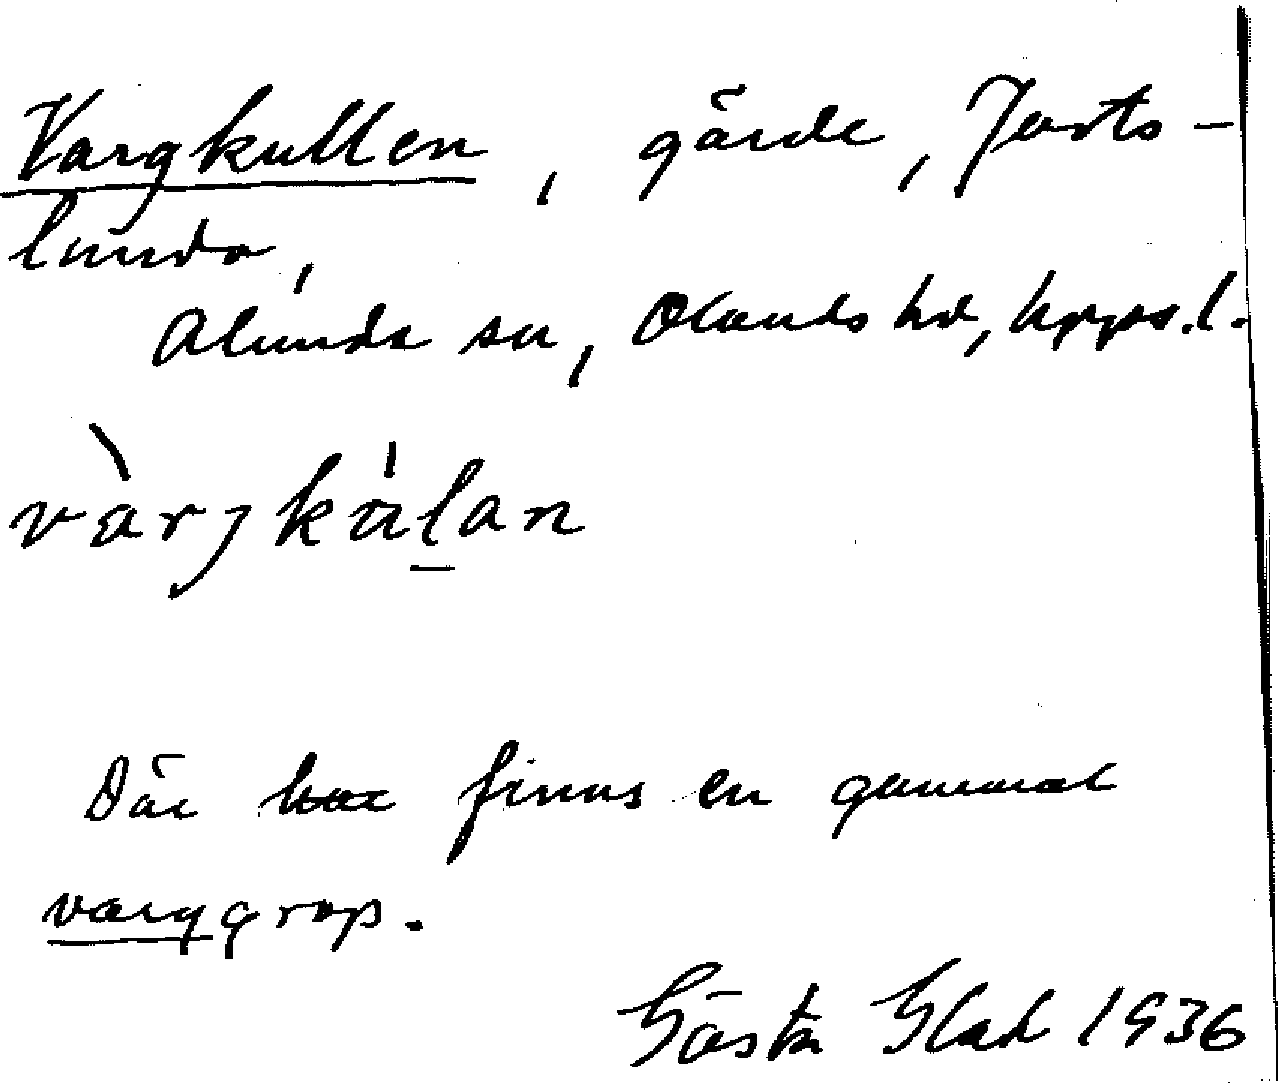 Vargkullen, gärde, Jorts-
lunda,
Alunda sn, Olands hd, Upps. l.
vàrjkúlan
Där finns en gammal
varggrop.
Gösta 1936